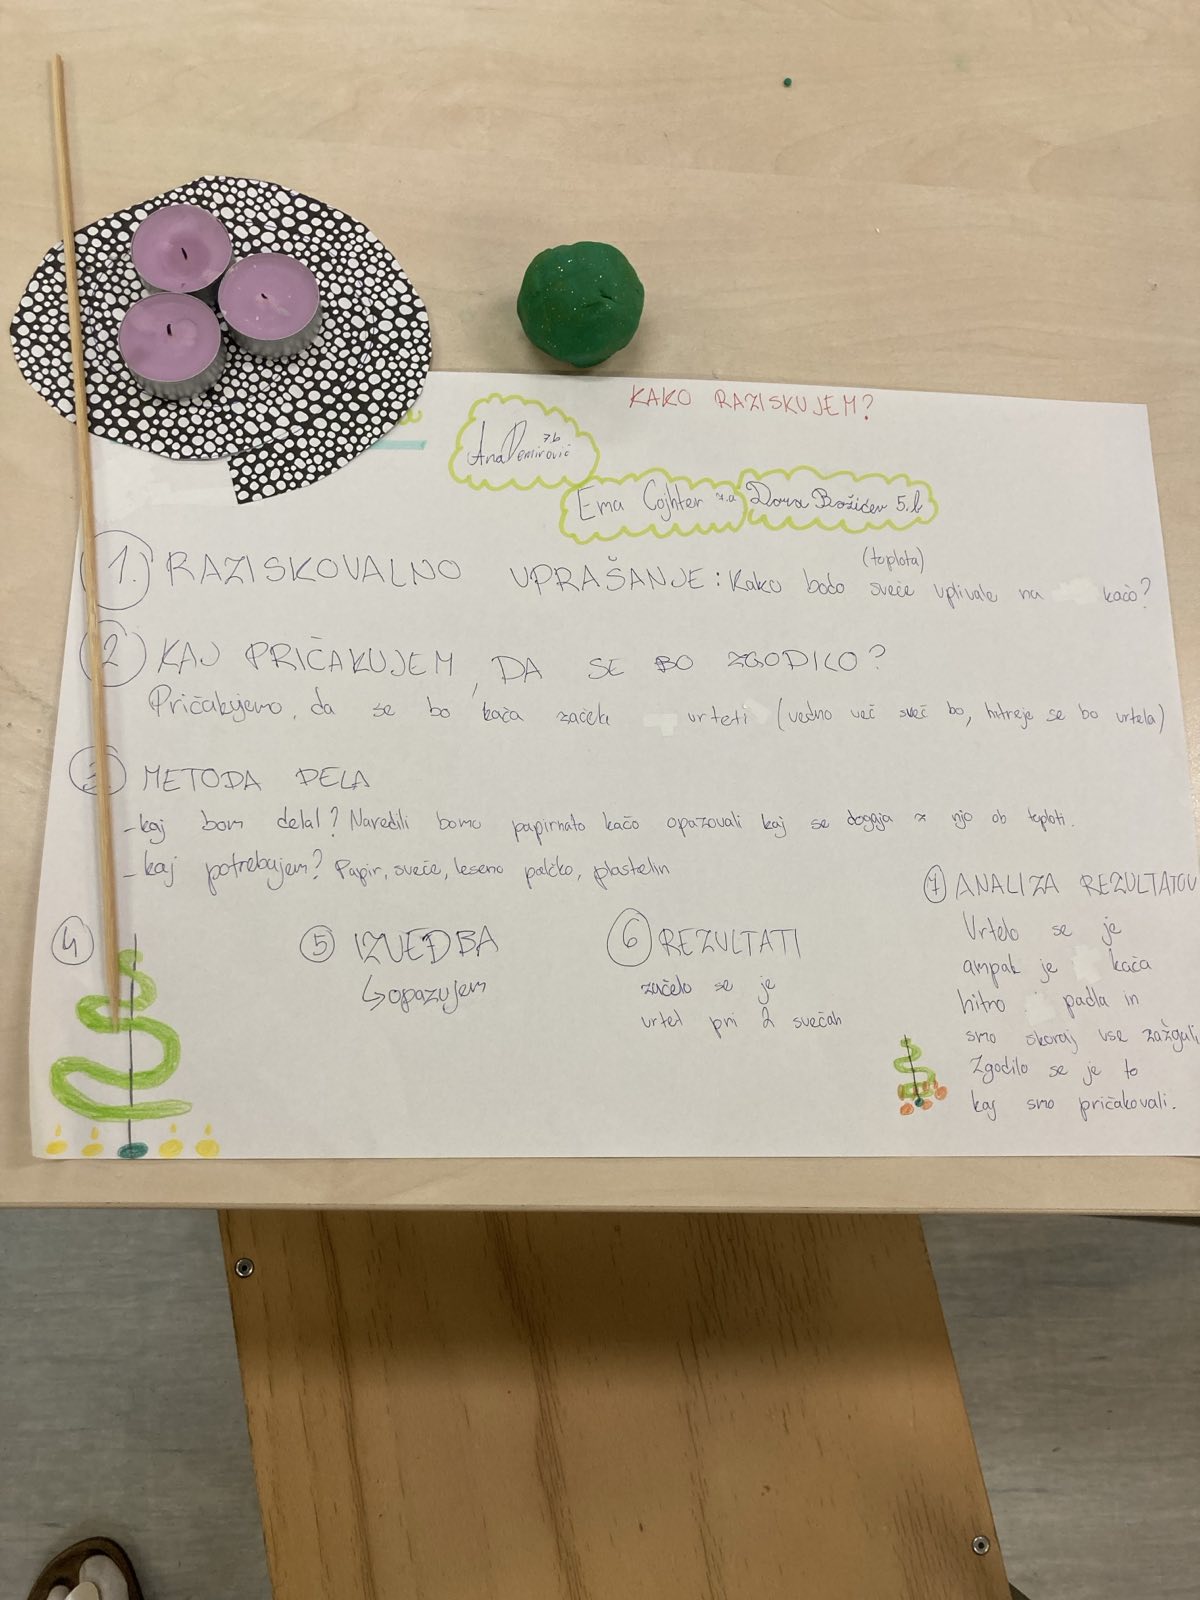 KAKO RAZISKUJEM?
Ana Demirović 7.b
Ema Cojhter 7.a Dora Božičev 5.b
1. RAZISKOVALNO VPRAŠANJE: Kako bodo sveče (toplota) vplivale na kačo?
2 KAJ PRIČAKUJEM, DA SE BO ZGODILO?
Pričakujemo, da se bo kača začela vrteti (vedno več sveč bo, hitreje se bo vrtela)
3 METODA DELA
- kaj bom delal? Naredili bomo papirnato kačo opazovali kaj se dogaja z njo ob toploti.
- kaj potrebujem? Papir, sveče, leseno palčko, plastelin
4
5 IZVEDBA
↳ opazujem
6 REZULTATI
začelo se je
vrtet pri 2 svečah
7 ANALIZA REZULTATOV
Vrtelo se je
ampak je kača
hitro padla in
smo skoraj vse zažgali
Zgodilo se je to
kaj smo pričakovali.